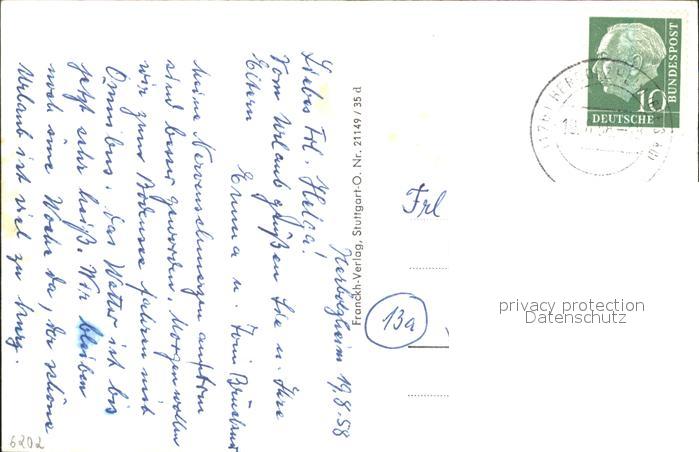 Herbolzheim 19.8.58
Liebes Frl. Helga!
Vom Urlaub grüßen Sie u. Ihre
Eltern
Emma u. Toni
Meine Nervenschmerzen
sind besser geworden. Morgen wollen
wir zum Bodensee fahren mit
Omnibus. Das Wetter ist bis
jetzt sehr heiß. Wir bleiben
noch eine Woche da, der schöne
Urlaub ist viel zu kurz.
Franckh-Verlag, Stuttgart-O. Nr. 21149/35 d
Frl
13a
10
DEUTSCHE
BUNDESPOST
privacy protection
Datenschutz
6202